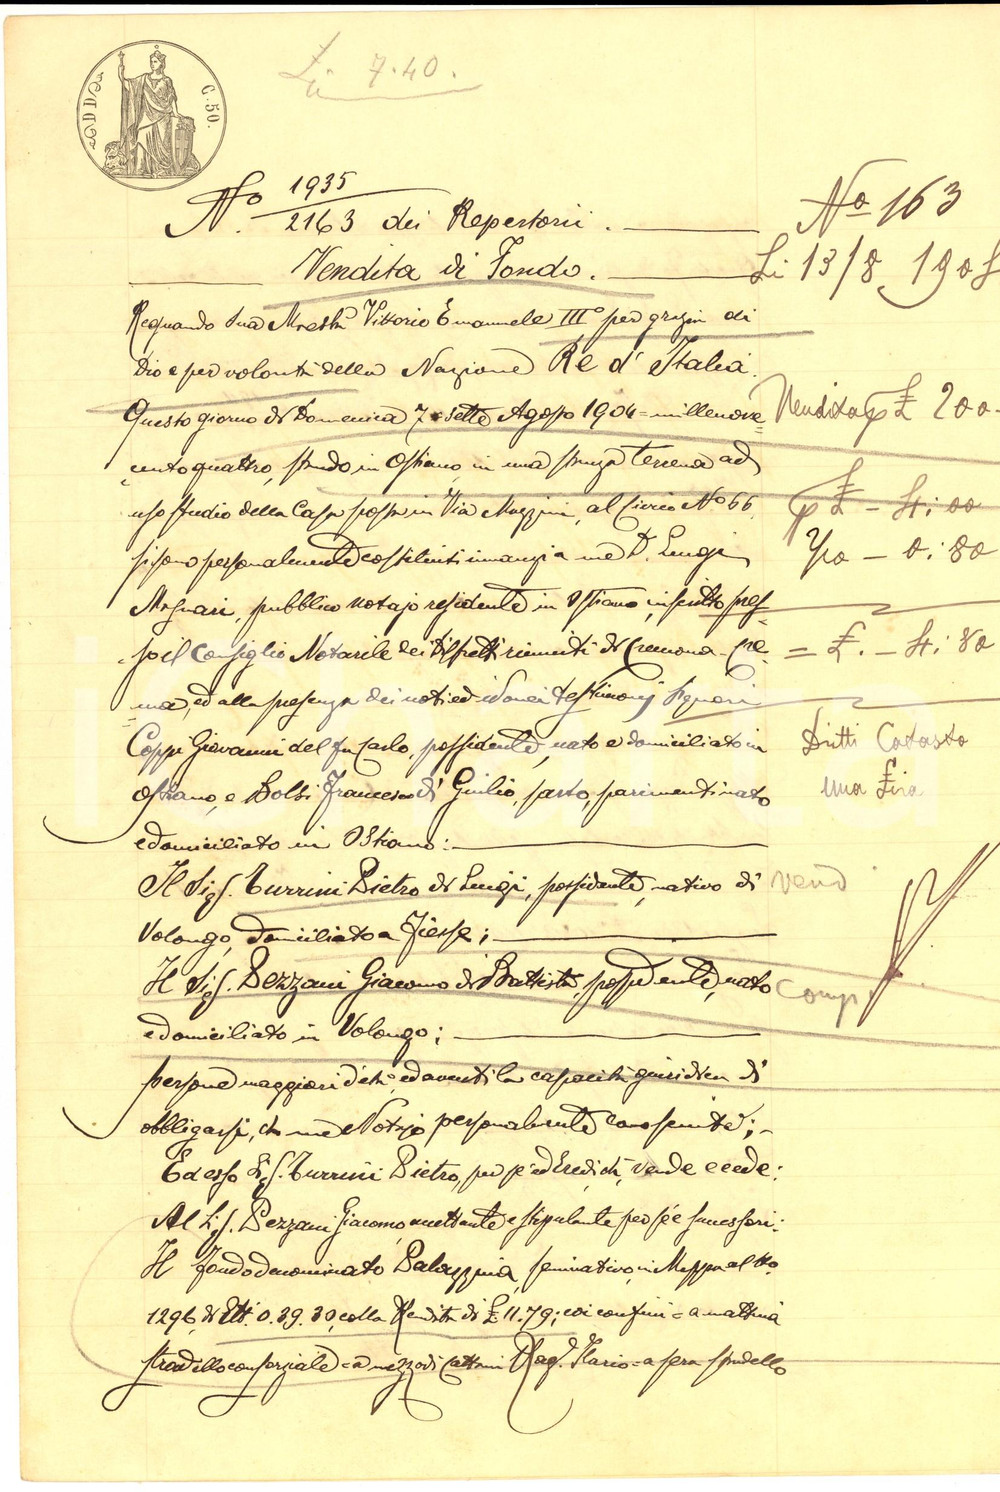 C. 50.
£i 7.40.
No 1935/2163 dei Repertorii.
Vendita di Fondo.
No 163
Li 13/8 1904
Regnando Sua Maestà Vittorio Emanuele III° per grazia di
Dio e per volontà della Nazione Re d'Italia.
Questo giorno di Domenica 7 = sette Agosto 1904 = millenove=
cento quattro, stando in Ostiano, in una stanza terrena ad
uso studio della Casa posta in Via Mazzini, al Civico No 66
si sono personalmente costituiti innanzi a me D. Luigi
Magnari, pubblico notajo residente in Ostiano, inscritto pres=
so il Consiglio Notarile dei Distretti riuniti di Cremona-Cre=
ma, ed alla presenza dei noti ed idonei testimonj Signori
Coppi Giovanni del fu Carlo, possidente, nato e domiciliato in
Ostiano, e Bolsi Francesco di Giulio, sarto, parimenti nato
e domiciliato in Ostiano:
Il Sig. Turrini Pietro di Luigi, possidente, nativo di
Volongo, domiciliato a Fiesse;
Il Sig. Pezzani Giacomo di Battista, possidente, nato
e domiciliato in Volongo;
persone maggiori d'età, ed aventi la capacità giuridica di
obbligarsi, da me Notajo personalmente conosciute;
Ed esso Sig. Turrini Pietro, per sè ed Eredi, dà, vende e cede:
Al Sig. Pezzani Giacomo accettante e stipulante per sè e successori:
Il fondo denominato Palazzina, seminativo, in Mappa al No
1296, di Ett. 0.39.30, colla Rendita di £ 11.79; coi confini = a mattina
stradello consorziale = a mezzodì Cattani Rag. Ilario = a sera stradello
Vendita p £ 200.
p £ - 4:00
- 0:80
= £. - 4:80
Dritti Catasto
una Lira
Vend
Comp